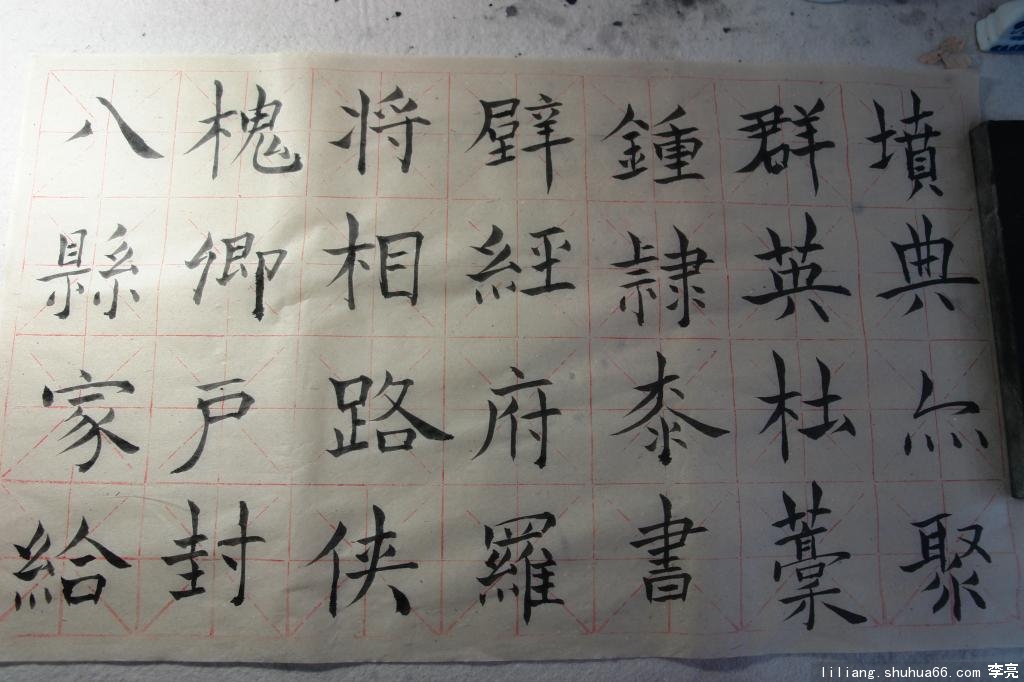 墳典亦聚
群英杜藁
鍾隸桼書
壁經府羅
将相路侠
槐卿戸封
八縣家給
liliang.shuhua66.com 李亮